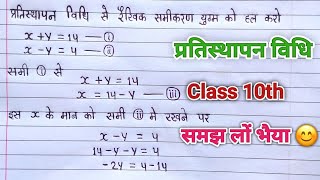 प्रतिस्थापन विधि से रैखिक समीकरण युग्म को हल करो
x + y = 14 — ⓘ
x - y = 4 — ⓘⓘ
प्रतिस्थापन विधि
समी ⓘ से
x + y = 14
x = 14 - y — ⓘⓘⓘ
Class 10th
इस x के मान को समी ⓘⓘ में रखने पर
समझ लों भैया 😊
x - y = 4
14 - y - y = 4
-2y = 4 - 14